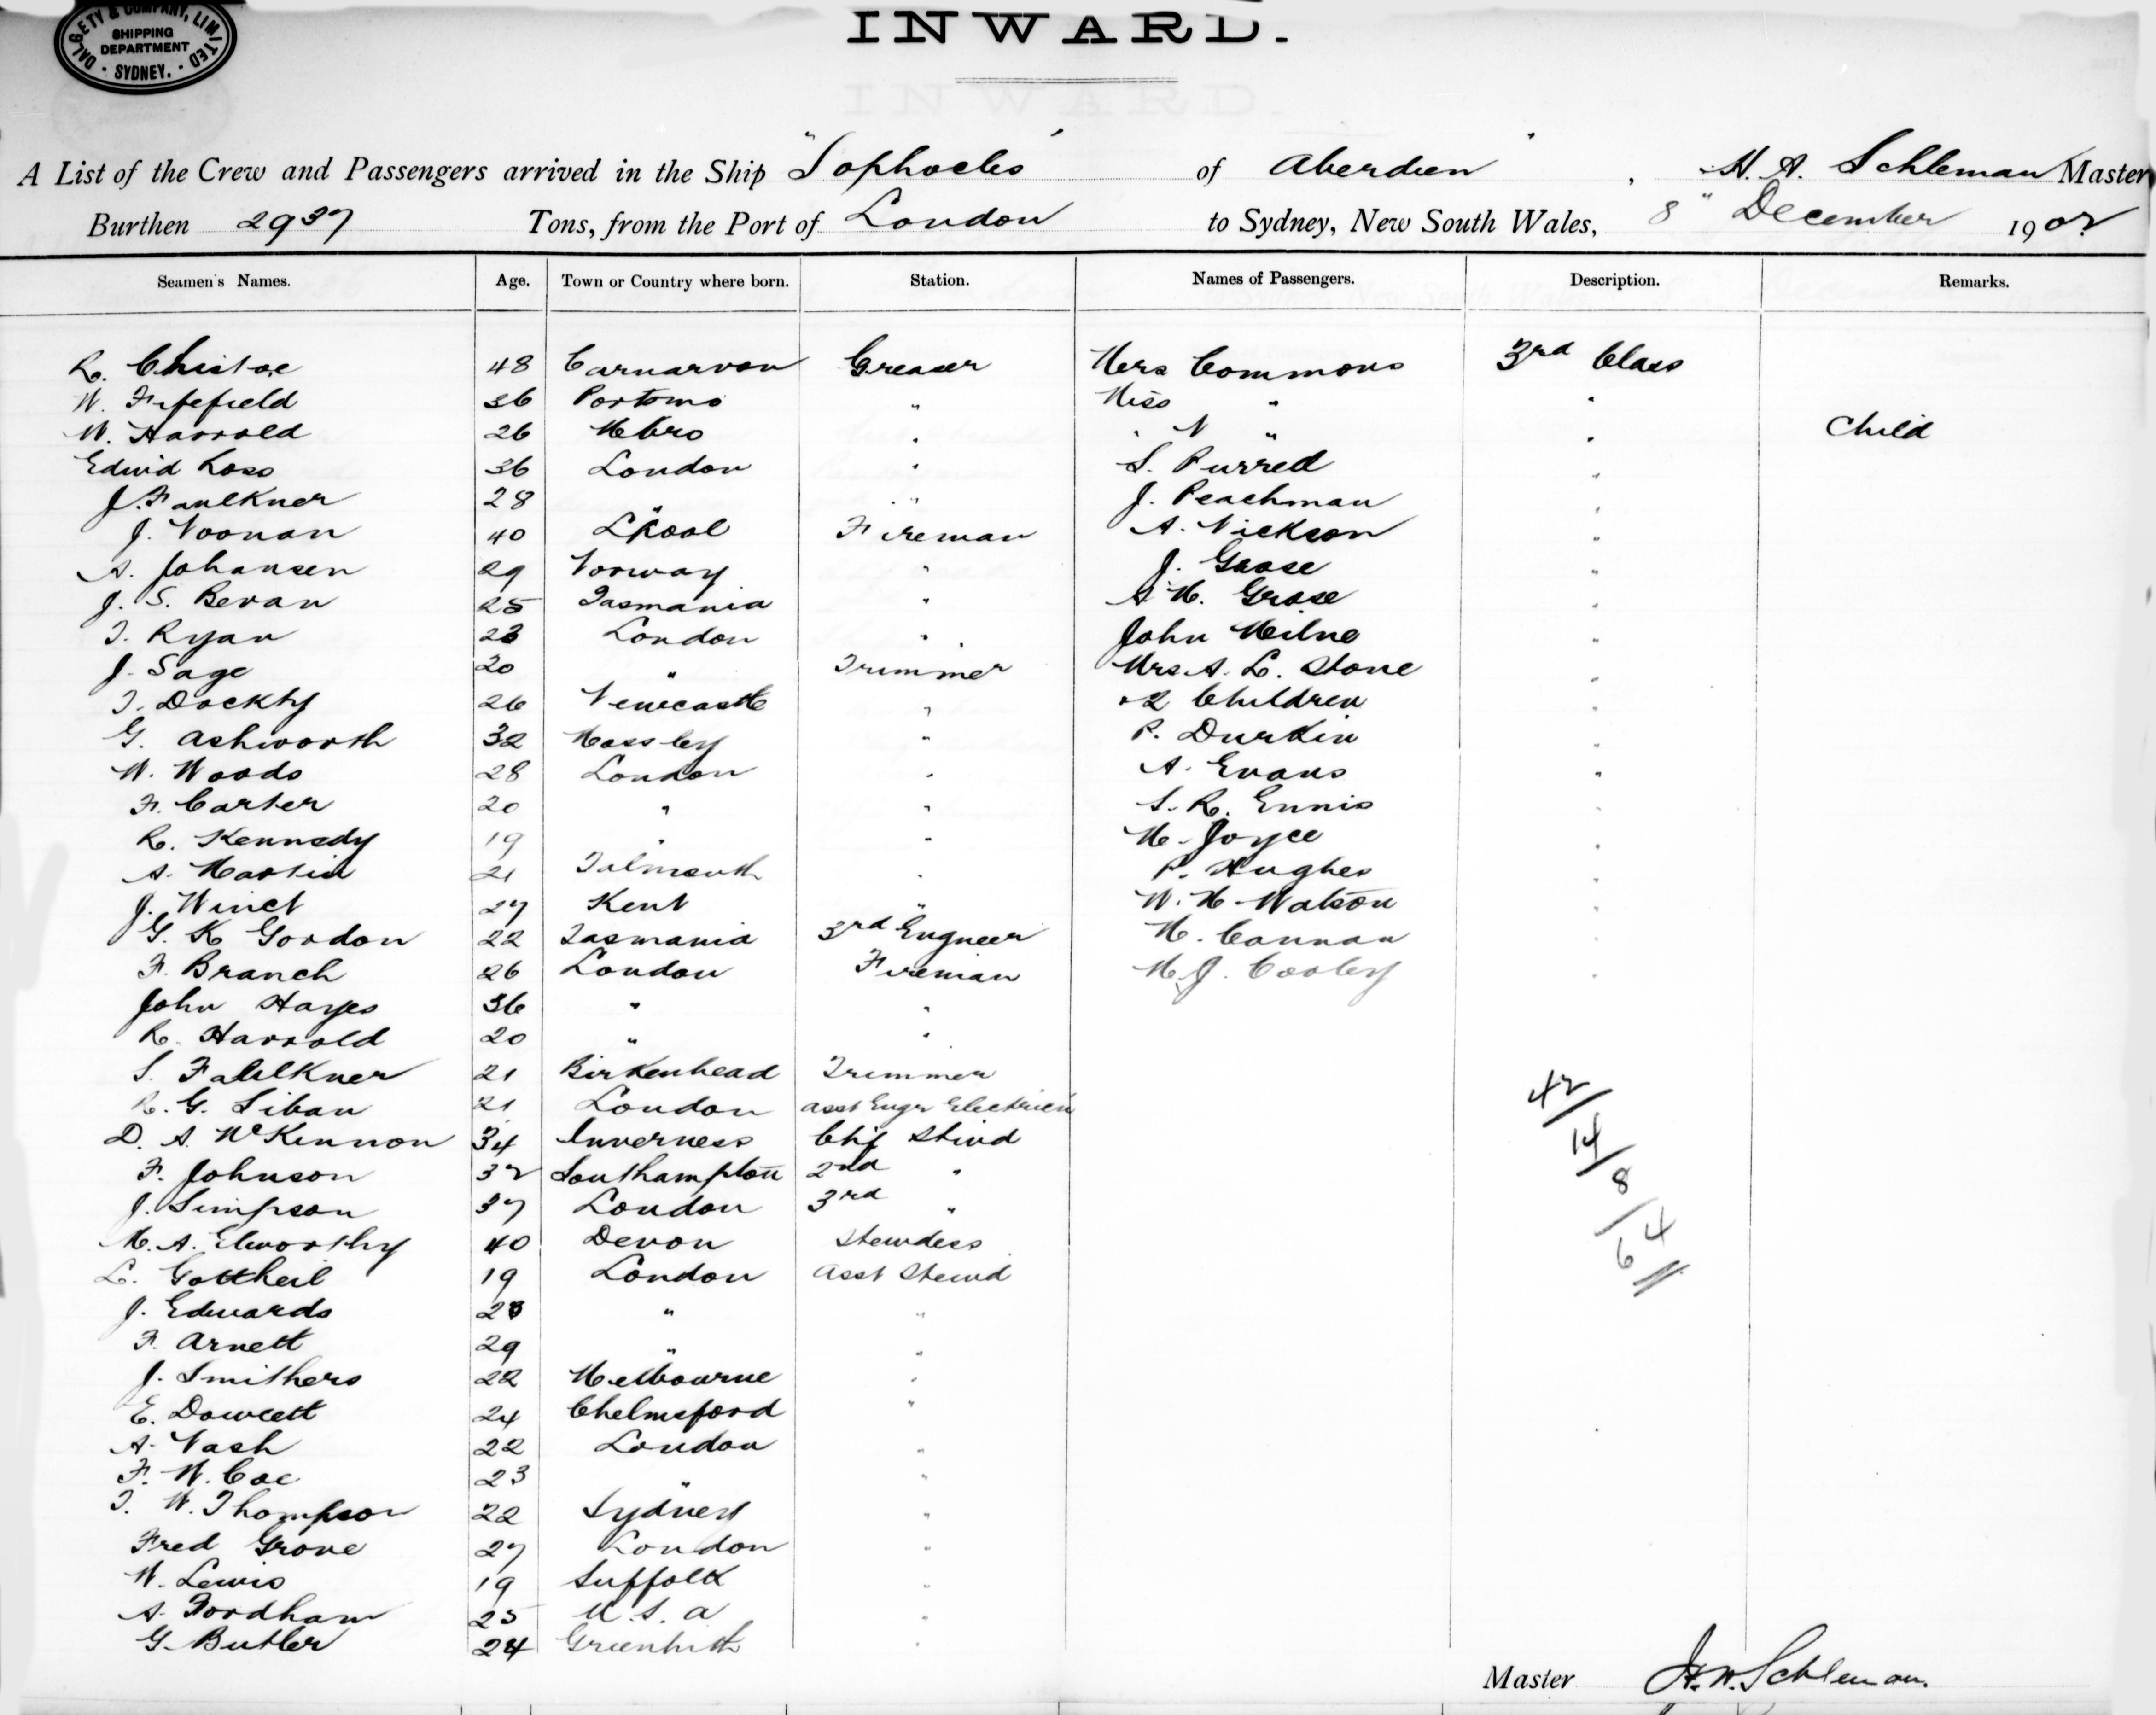 DALGETY & COMPANY, LIMITED
SHIPPING
DEPARTMENT
SYDNEY.
INWARD.
A List of the Crew and Passengers arrived in the Ship "Sophocles" of Aberdeen, H. A. Schleman Master
Burthen 2937 Tons, from the Port of London to Sydney, New South Wales, 8" December 1902
Seamen's Names. Age. Town or Country where born. Station. Names of Passengers. Description. Remarks.
R. Christoe 48 Carnarvon Greaser Mrs Commons 3rd Class
W. Fifefield 36 Portsmo " Miss " "
W. Harrold 26 Mbro " " N " " Child
Edwid Ross 36 London " S. Purred "
J. Faulkner 28 " " J. Peachman "
J. Noonan 40 L'pool Fireman A. Nickson "
A. Johansen 29 Norway " J. Grose "
J. S. Bevan 25 Tasmania " A M. Grose "
T. Ryan 23 London " John Milne "
J. Sage 20 " Trimmer Mrs A. L. Stone "
T. Dockty 26 Newcastle " " 2 Children "
G. Ashworth 32 Mossley " P. Durkin "
W. Woods 28 London " A. Evans "
F. Carter 20 " " S. R. Ennis "
R. Kennedy 19 " " M. Joyce "
A. Martin 21 Falmouth " P. Hughes "
J. Winct 27 Kent " W. H. Watson "
G. K Gordon 22 Tasmania 3rd Engneer M. Cannan "
F. Branch 26 London Fireman M. J. Cooley "
John Hayes 36 " "
R. Harrold 20 " "
S. Faulkner 21 Birkenhead Trimmer
R. G. Siban 21 London Asst Engr Electricn
D. A. McKinnon 34 Inverness Chf Stwd
F. Johnson 32 Southampton 2nd "
J. Simpson 37 London 3rd "
M. A. Elworthy 40 Devon Stewdess
L. Gottheil 19 London Asst Stewd
J. Edwards 28 " "
F. Arnett 29 " "
J. Smithers 22 Melbourne "
E. Dowcett 24 Chelmsford "
A. Nash 22 London "
F. W. Coe 23 " "
T. W. Thompson 22 Sydney "
Fred Grove 27 London "
W. Lewis 19 Suffolk "
A. Fordham 25 U. S. A "
G. Butler 24 Greenhith "
42/14/8/4
64
Master H. A. Schleman.